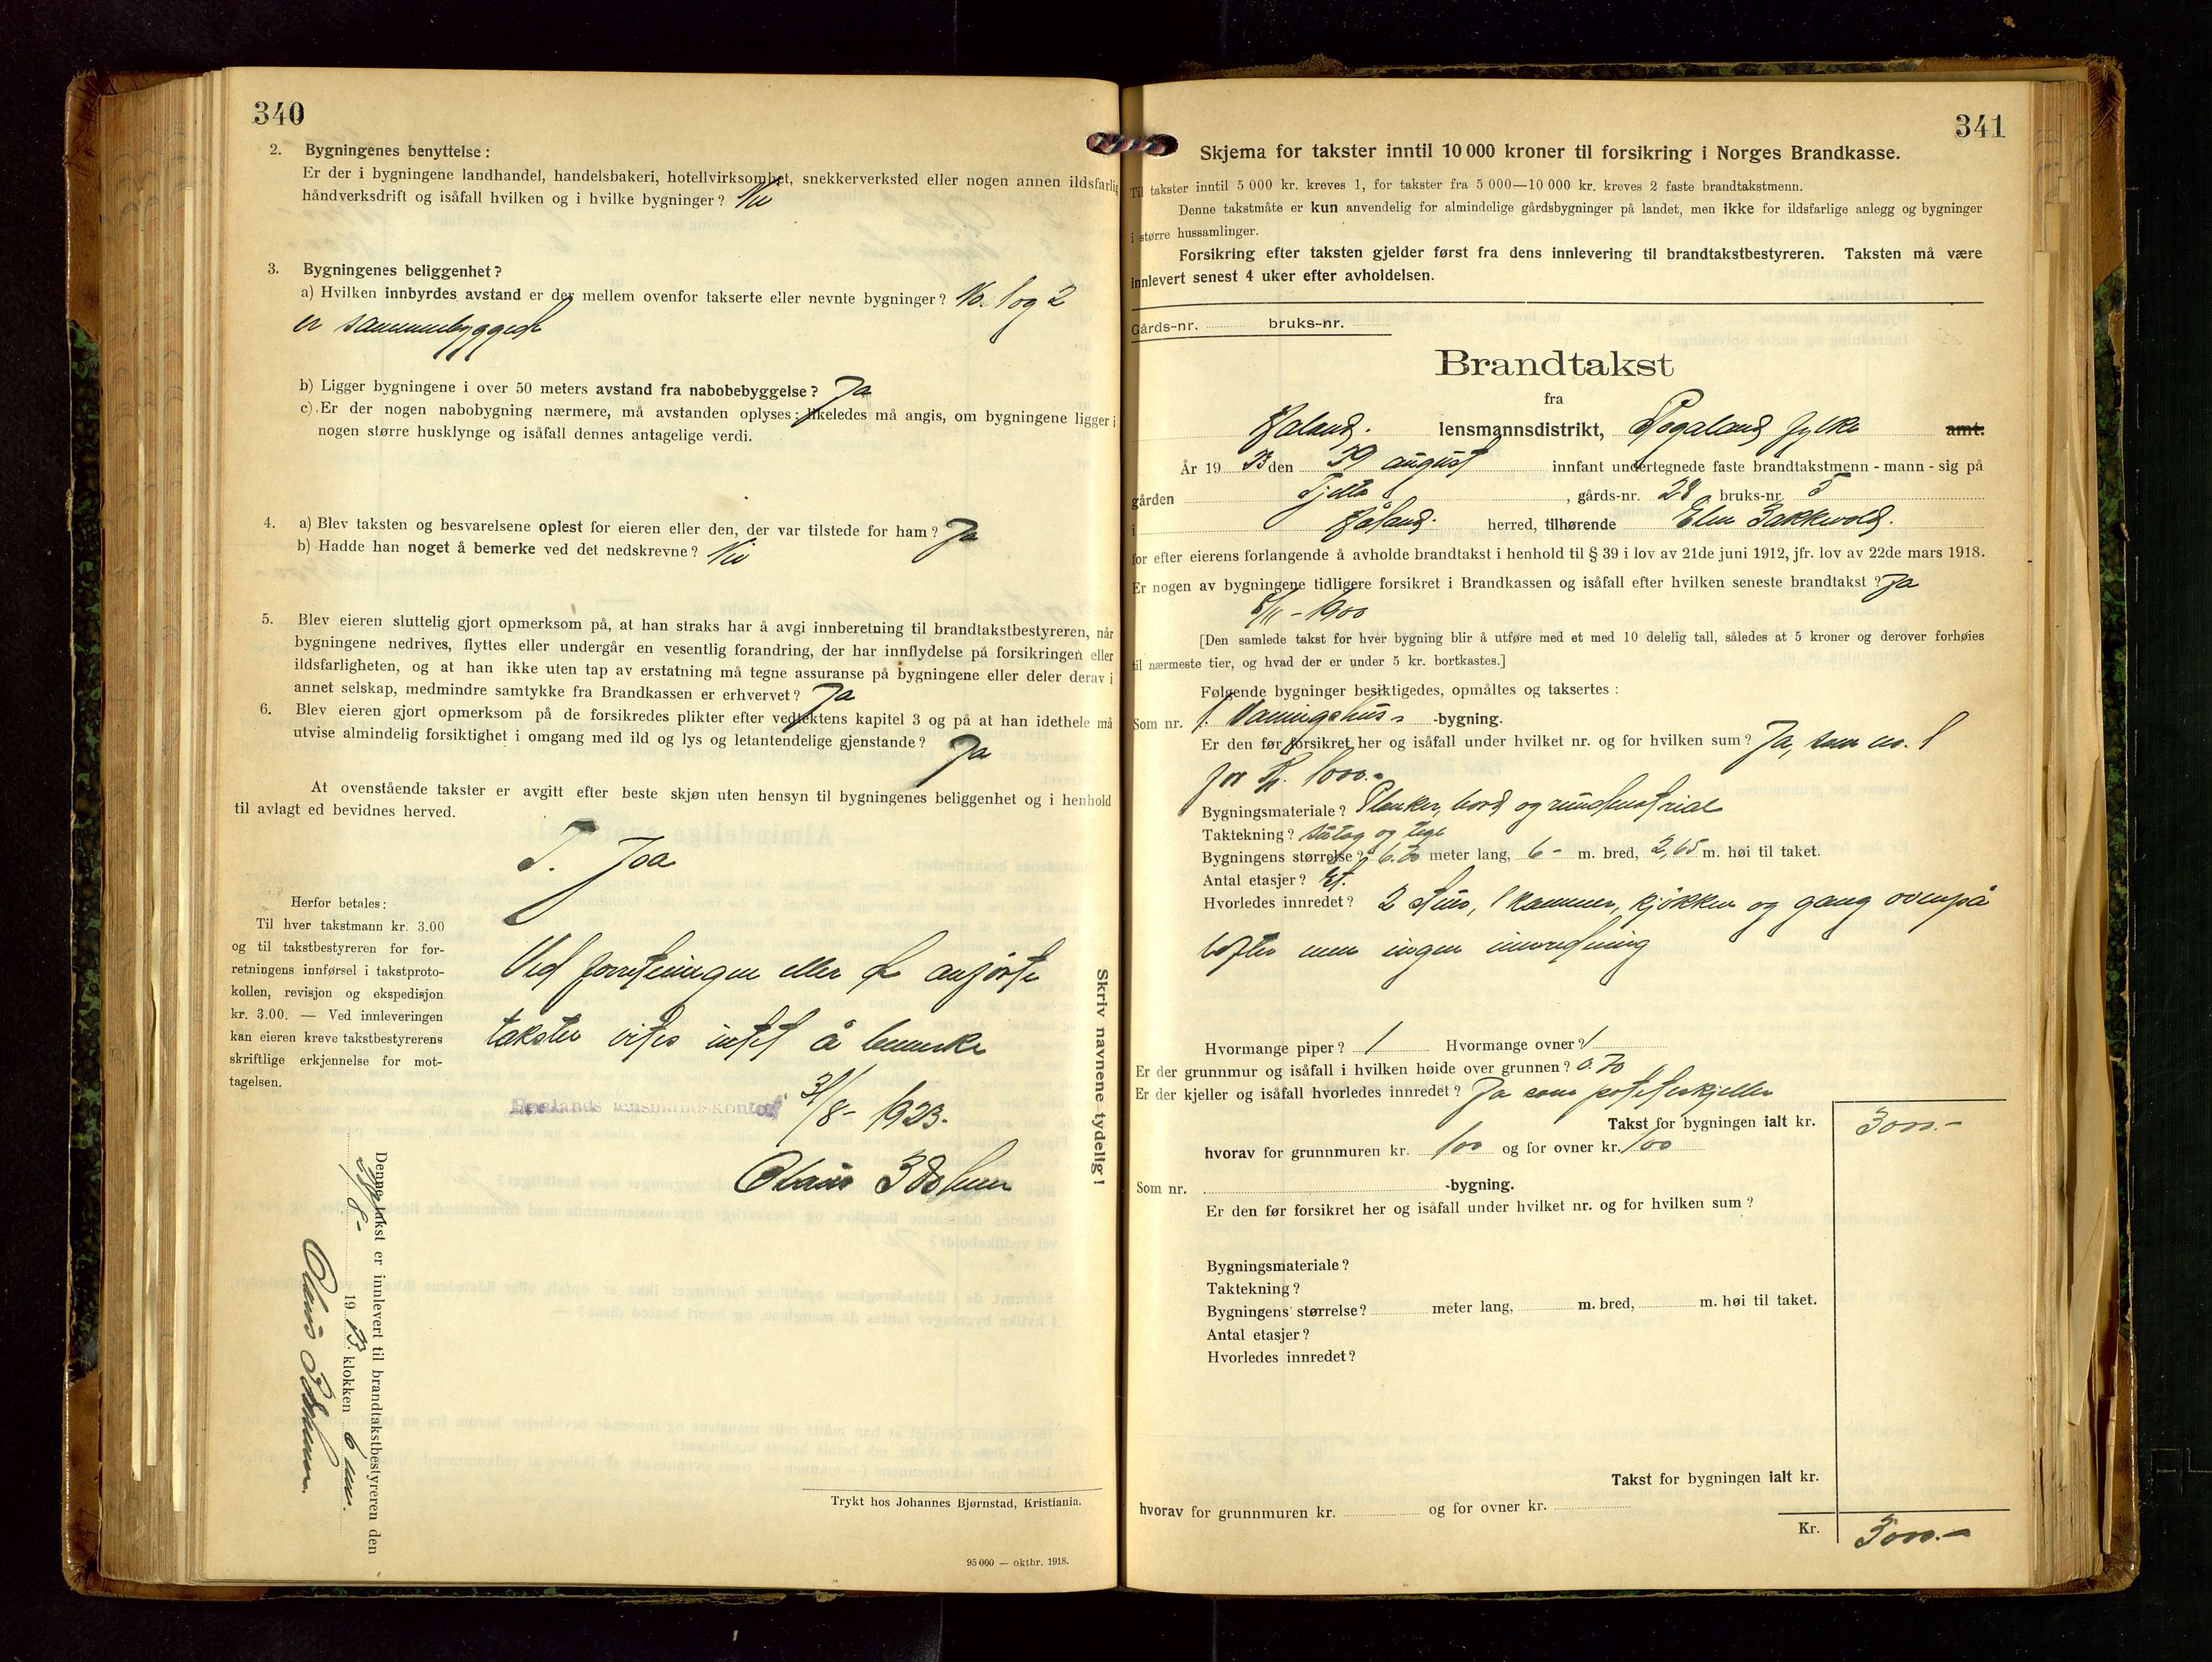 340
2. Bygningenes benyttelse:
Er der i bygningene landhandel, handelsbakeri, hotellvirksomhet, snekkerverksted eller nogen annen ildsfarlig
håndverksdrift og isåfall hvilken og i hvilke bygninger? Nei
3. Bygningenes beliggenhet?
a) Hvilken innbyrdes avstand er der mellem ovenfor takserte eller nevnte bygninger? No. 1 og 2
er sammenbygget
b) Ligger bygningene i over 50 meters avstand fra nabobebyggelse? Ja
c) Er der nogen nabobygning nærmere, må avstanden oplyses; likeledes må angis, om bygningene ligger i
nogen større husklynge og isåfall dennes antagelige verdi.
4. a) Blev taksten og besvarelsene oplest for eieren eller den, der var tilstede for ham? Ja
b) Hadde han noget å bemerke ved det nedskrevne? Nei
5. Blev eieren sluttelig gjort opmerksom på, at han straks har å avgi innberetning til brandtakstbestyreren, når
bygningene nedrives, flyttes eller undergår en vesentlig forandring, der har innflydelse på forsikringen eller
ildsfarligheten, og at han ikke uten tap av erstatning må tegne assuranse på bygningene eller deler derav i
annet selskap, medmindre samtykke fra Brandkassen er erhvervet? Ja
6. Blev eieren gjort opmerksom på de forsikredes plikter efter vedtektens kapitel 3 og på at han idethele må
utvise almindelig forsiktighet i omgang med ild og lys og letantendelige gjenstande? Ja
At ovenstående takster er avgitt efter beste skjøn uten hensyn til bygningenes beliggenhet og i henhold
til avlagt ed bevidnes herved.
T. Joa
Herfor betales:
Til hver takstmann kr. 3.00
og til takstbestyreren for for-
retningens innførsel i takstproto-
kollen, revisjon og ekspedisjon
kr. 3.00. — Ved innleveringen
kan eieren kreve takstbestyrerens
skriftlige erkjennelse for mot-
tagelsen.
Ved forretningen eller de anførte
takster vites intet å bemerke
lensmandskontor 31/8- 1923.
Skriv navnene tydelig!
Denne takst er innlevert til brandtakstbestyreren den
8- 1923 klokken 6 em.
Trykt hos Johannes Bjørnstad, Kristiania.
95 000 — oktbr. 1918.
341
Skjema for takster inntil 10 000 kroner til forsikring i Norges Brandkasse.
Til takster inntil 5 000 kr. kreves 1, for takster fra 5 000—10 000 kr. kreves 2 faste brandtakstmenn.
Denne takstmåte er kun anvendelig for almindelige gårdsbygninger på landet, men ikke for ildsfarlige anlegg og bygninger
i større hussamlinger.
Forsikring efter taksten gjelder først fra dens innlevering til brandtakstbestyreren. Taksten må være
innlevert senest 4 uker efter avholdelsen.
Gårds-nr. bruks-nr.
Brandtakst
fra
Håland. lensmannsdistrikt, Rogaland fylke amt.
År 1923 den 29 august innfant undertegnede faste brandtakstmenn - mann - sig på
gården Tjelta, gårds-nr. 28 bruks-nr. 5
i Håland. herred, tilhørende Elen Bakkevold.
for efter eierens forlangende å avholde brandtakst i henhold til § 39 i lov av 21de juni 1912, jfr. lov av 22de mars 1918.
Er nogen av bygningene tidligere forsikret i Brandkassen og isåfall efter hvilken seneste brandtakst? Ja
/11 - 1900
[Den samlede takst for hver bygning blir å utføre med et med 10 delelig tall, således at 5 kroner og derover forhøies
til nærmeste tier, og hvad der er under 5 kr. bortkastes.]
Følgende bygninger besiktigedes, opmåltes og taksertes:
Som nr. 1. Vaningshus- -bygning.
Er den før forsikret her og isåfall under hvilket nr. og for hvilken sum? Ja, som no. 1
for kr. 1000.-
Bygningsmateriale? Planker, bord og rundmaterial
Taktekning? sutag og tegl
Bygningens størrelse? 6.70 meter lang, 6- m. bred, 2,65 m. høi til taket.
Antal etasjer? Et.
Hvorledes innredet? 2 stuer, 1 kammer, kjøkken og gang ovenpå
lofter men ingen innredning
Hvormange piper? 1 Hvormange ovner? 1
Er der grunnmur og isåfall i hvilken høide over grunnen? 0.70
Er der kjeller og isåfall hvorledes innredet? Ja som poteteskjeller
Takst for bygningen ialt kr. 3000.-
hvorav for grunnmuren kr. 100 og for ovner kr. 100
Som nr. -bygning.
Er den før forsikret her og isåfall under hvilket nr. og for hvilken sum?
Bygningsmateriale?
Taktekning?
Bygningens størrelse? meter lang, m. bred, m. høi til taket.
Antal etasjer?
Hvorledes innredet?
Takst for bygningen ialt kr.
hvorav for grunnmuren kr. og for ovner kr.
Kr. 3000.-